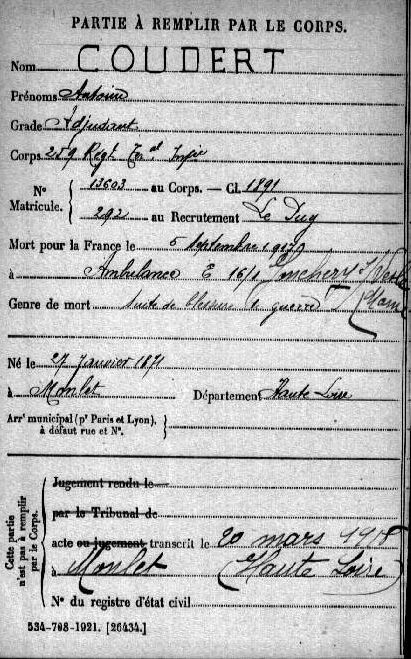 PARTIE À REMPLIR PAR LE CORPS.
Nom COUDERT
Prénoms Antoine
Grade Adjudant
Corps 259 Régt Tal Infie
N° Matricule. { 13603 au Corps. — Cl. 1891
292 au Recrutement Le Puy
Mort pour la France le 5 septembre 1917
à Ambulance E 16/1 Jonchery s/ Vesle
(Marne)
Genre de mort suite de blessures de guerre
Né le 27 Janvier 1871
à Monlet Département Haute Loire
Arrt municipal (pr Paris et Lyon), à défaut rue et N°. }
Cette partie n'est pas à remplir par le Corps.
Jugement rendu le
par le Tribunal de
acte ou jugement transcrit le 20 mars 1918
à Monlet (Haute Loire)
N° du registre d'état civil
534-708-1921. [26434.]